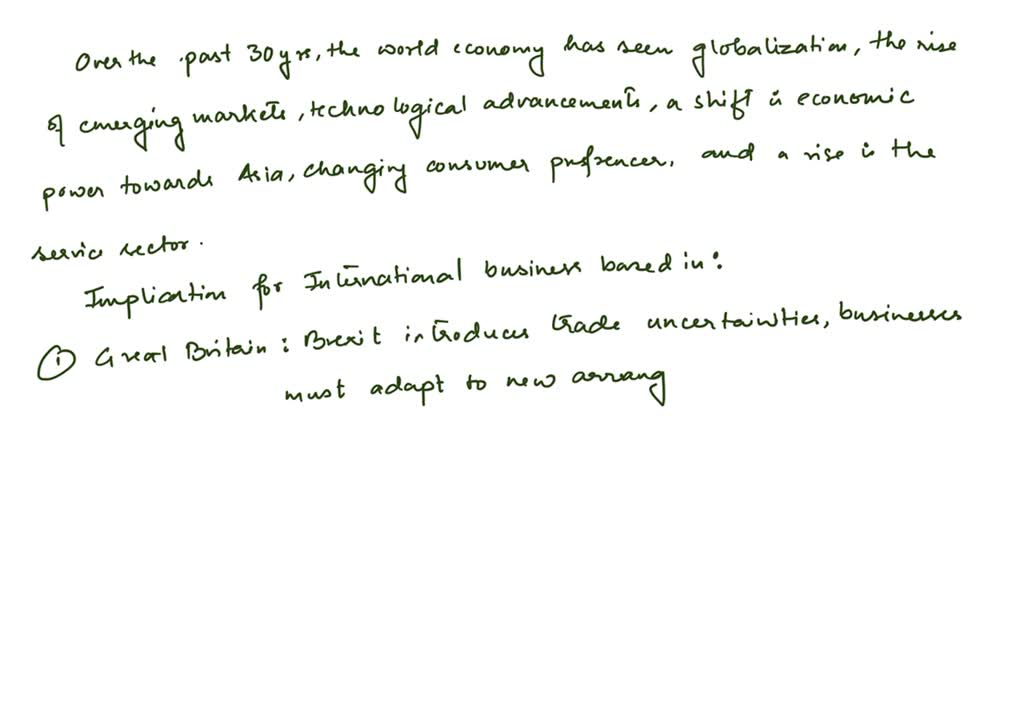 Over the past 30 yrs, the world economy has seen globalization, the rise
of emerging markets, technological advancements, a shift in economic
power towards Asia, changing consumer prefrences, and a rise in the
service sector.
Implication for International business based in:
① Great Britain: Brexit introduces trade uncertainties, businesses
must adapt to new arrang